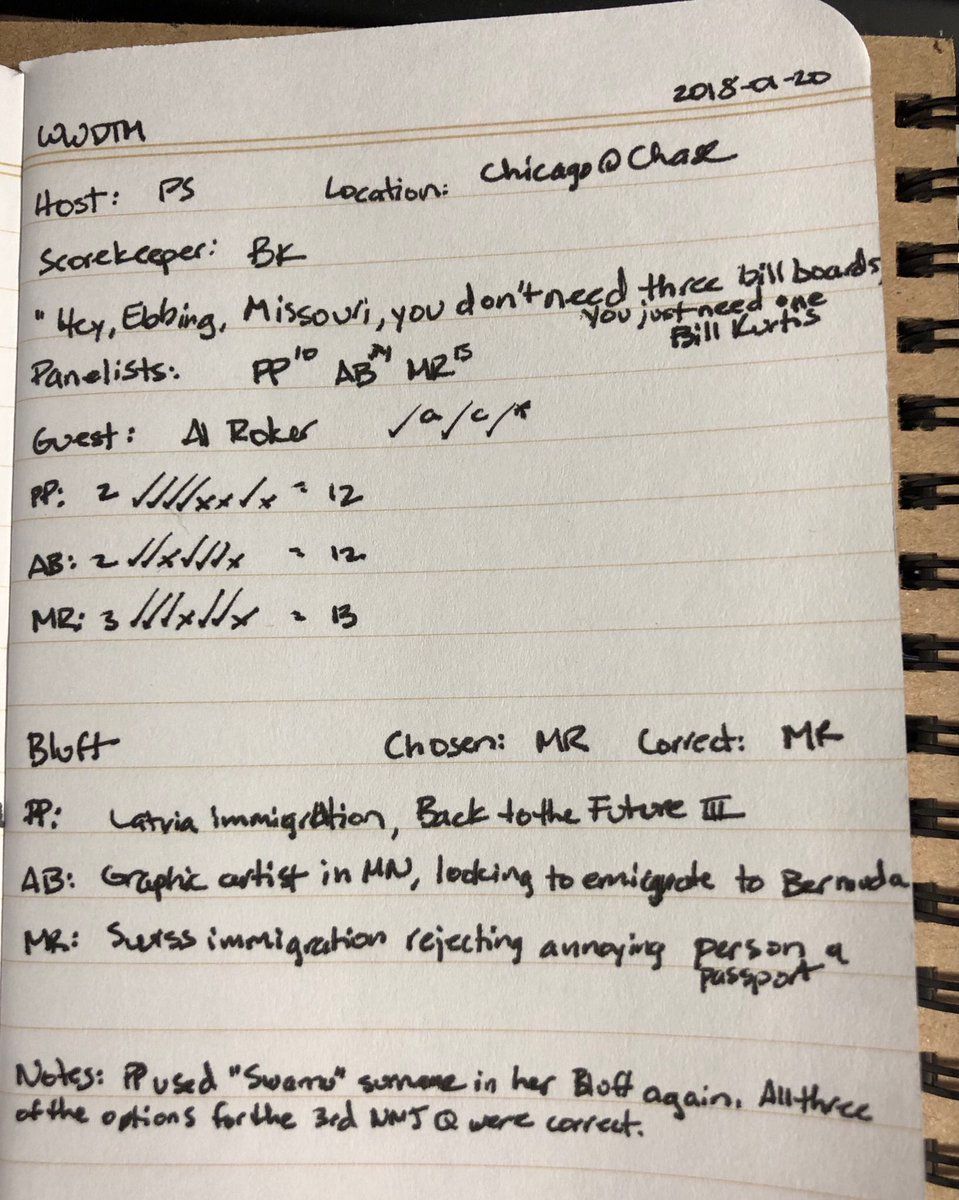 2018-01-20
WWDTM
Host: PS Location: Chicago @ Chase
Scorekeeper: BK
"Hey, Ebbing, Missouri, you don't need three bill boards,
you just need one
Bill Kurtis
Panelists: PP 10 AB 14 MR 15
Guest: Al Roker ✓a ✓c ✓*
PP: 2 ✓✓✓✓xx✓x = 12
AB: 2 ✓✓x✓✓✓x = 12
MR: 3 ✓✓✓x✓✓x = 13
Bluff Chosen: MR Correct: MR
PP: Latvia immigration, Back to the Future III
AB: Graphic artist in MN, looking to emigrate to Bermuda
MR: Swiss immigration rejecting annoying person a
passport
Notes: PP used "Swann" surname in her Bluff again. All three
of the options for the 3rd NMJ Q were correct.